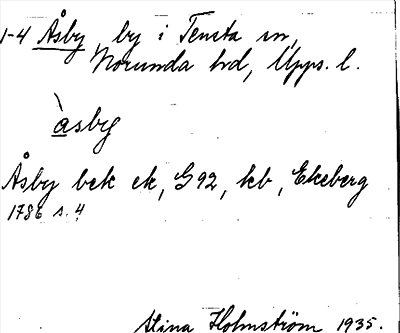 1-4 Åsby by i Tensta sn,
Norunda hd, Upps. l.
àsby
Åsby bek ek, G 92, kb, Ekeberg
1786 s. 4
Stina Holmström 1935.